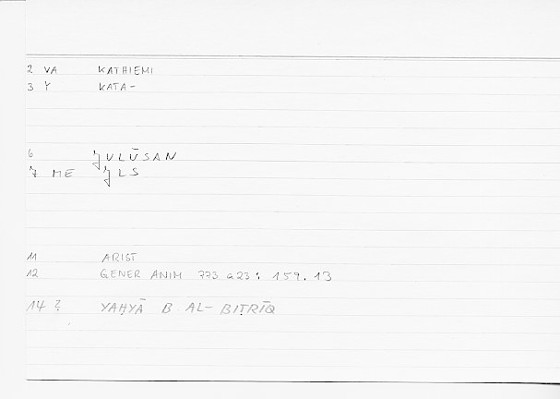 2 VA KATHIEMI
3 Y KATA-
6 ǦULŪSAN
7 ME ǦLS
11 ARIST
12 GENER ANIM 773 a23 : 159.13
14 YAḤYĀ B AL-BIṬRĪQ